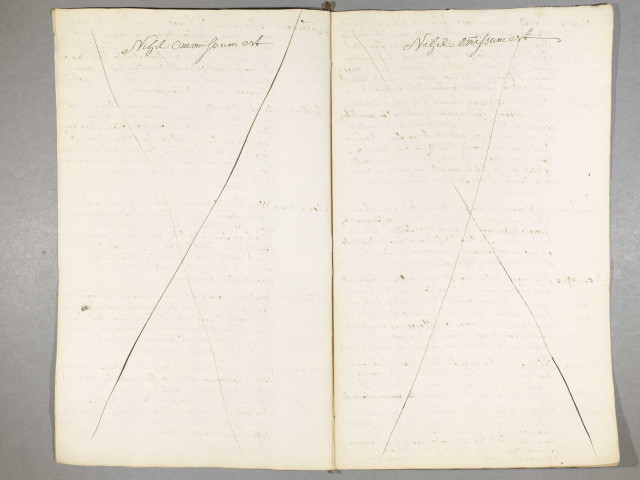 Nihil ommissum est
Nihil om̅issum est